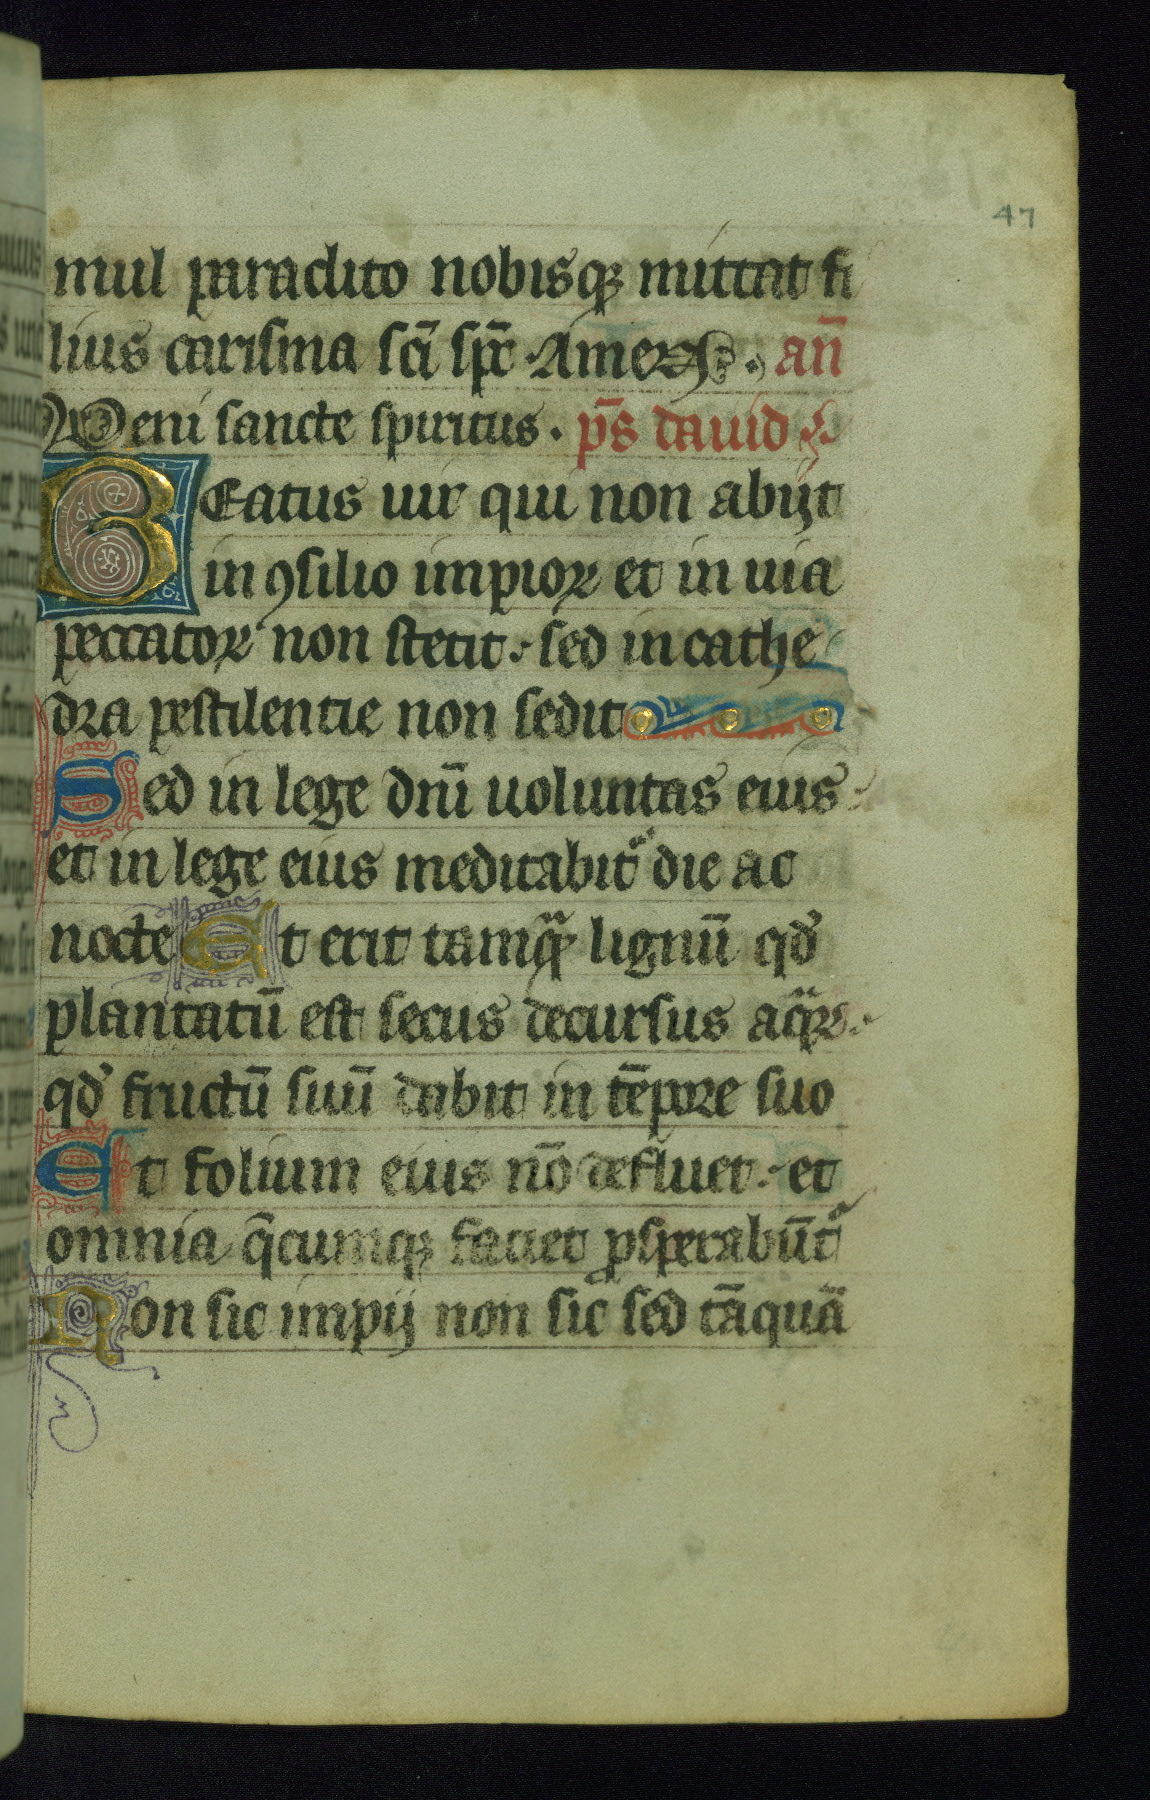 47
mul paraclito nobisqꝫ mittat fi
lius carisma sc̄i sp̄c · Amen · an̄
Veni sancte spiritus · p̄s dauid
BEatus uir qui non abijt
in ꝯsilio impioꝝ et in uia
peccatoꝝ non stetit · sed in cathe
dra pestilentie non sedit
Sed in lege dn̄i uoluntas eius ·
et in lege eius meditabit᷑ die ac
nocte Et erit tamqͣ lignū qd̓
plantatū est secus decursus aqͣꝝ ·
qd̓ fructū suū dabit in tēpore suo
Et folium eius nō defluet · et
omnia q̄cumqꝫ faciet ꝓsperabūt᷑
Non sic impij non sic sed tāquā